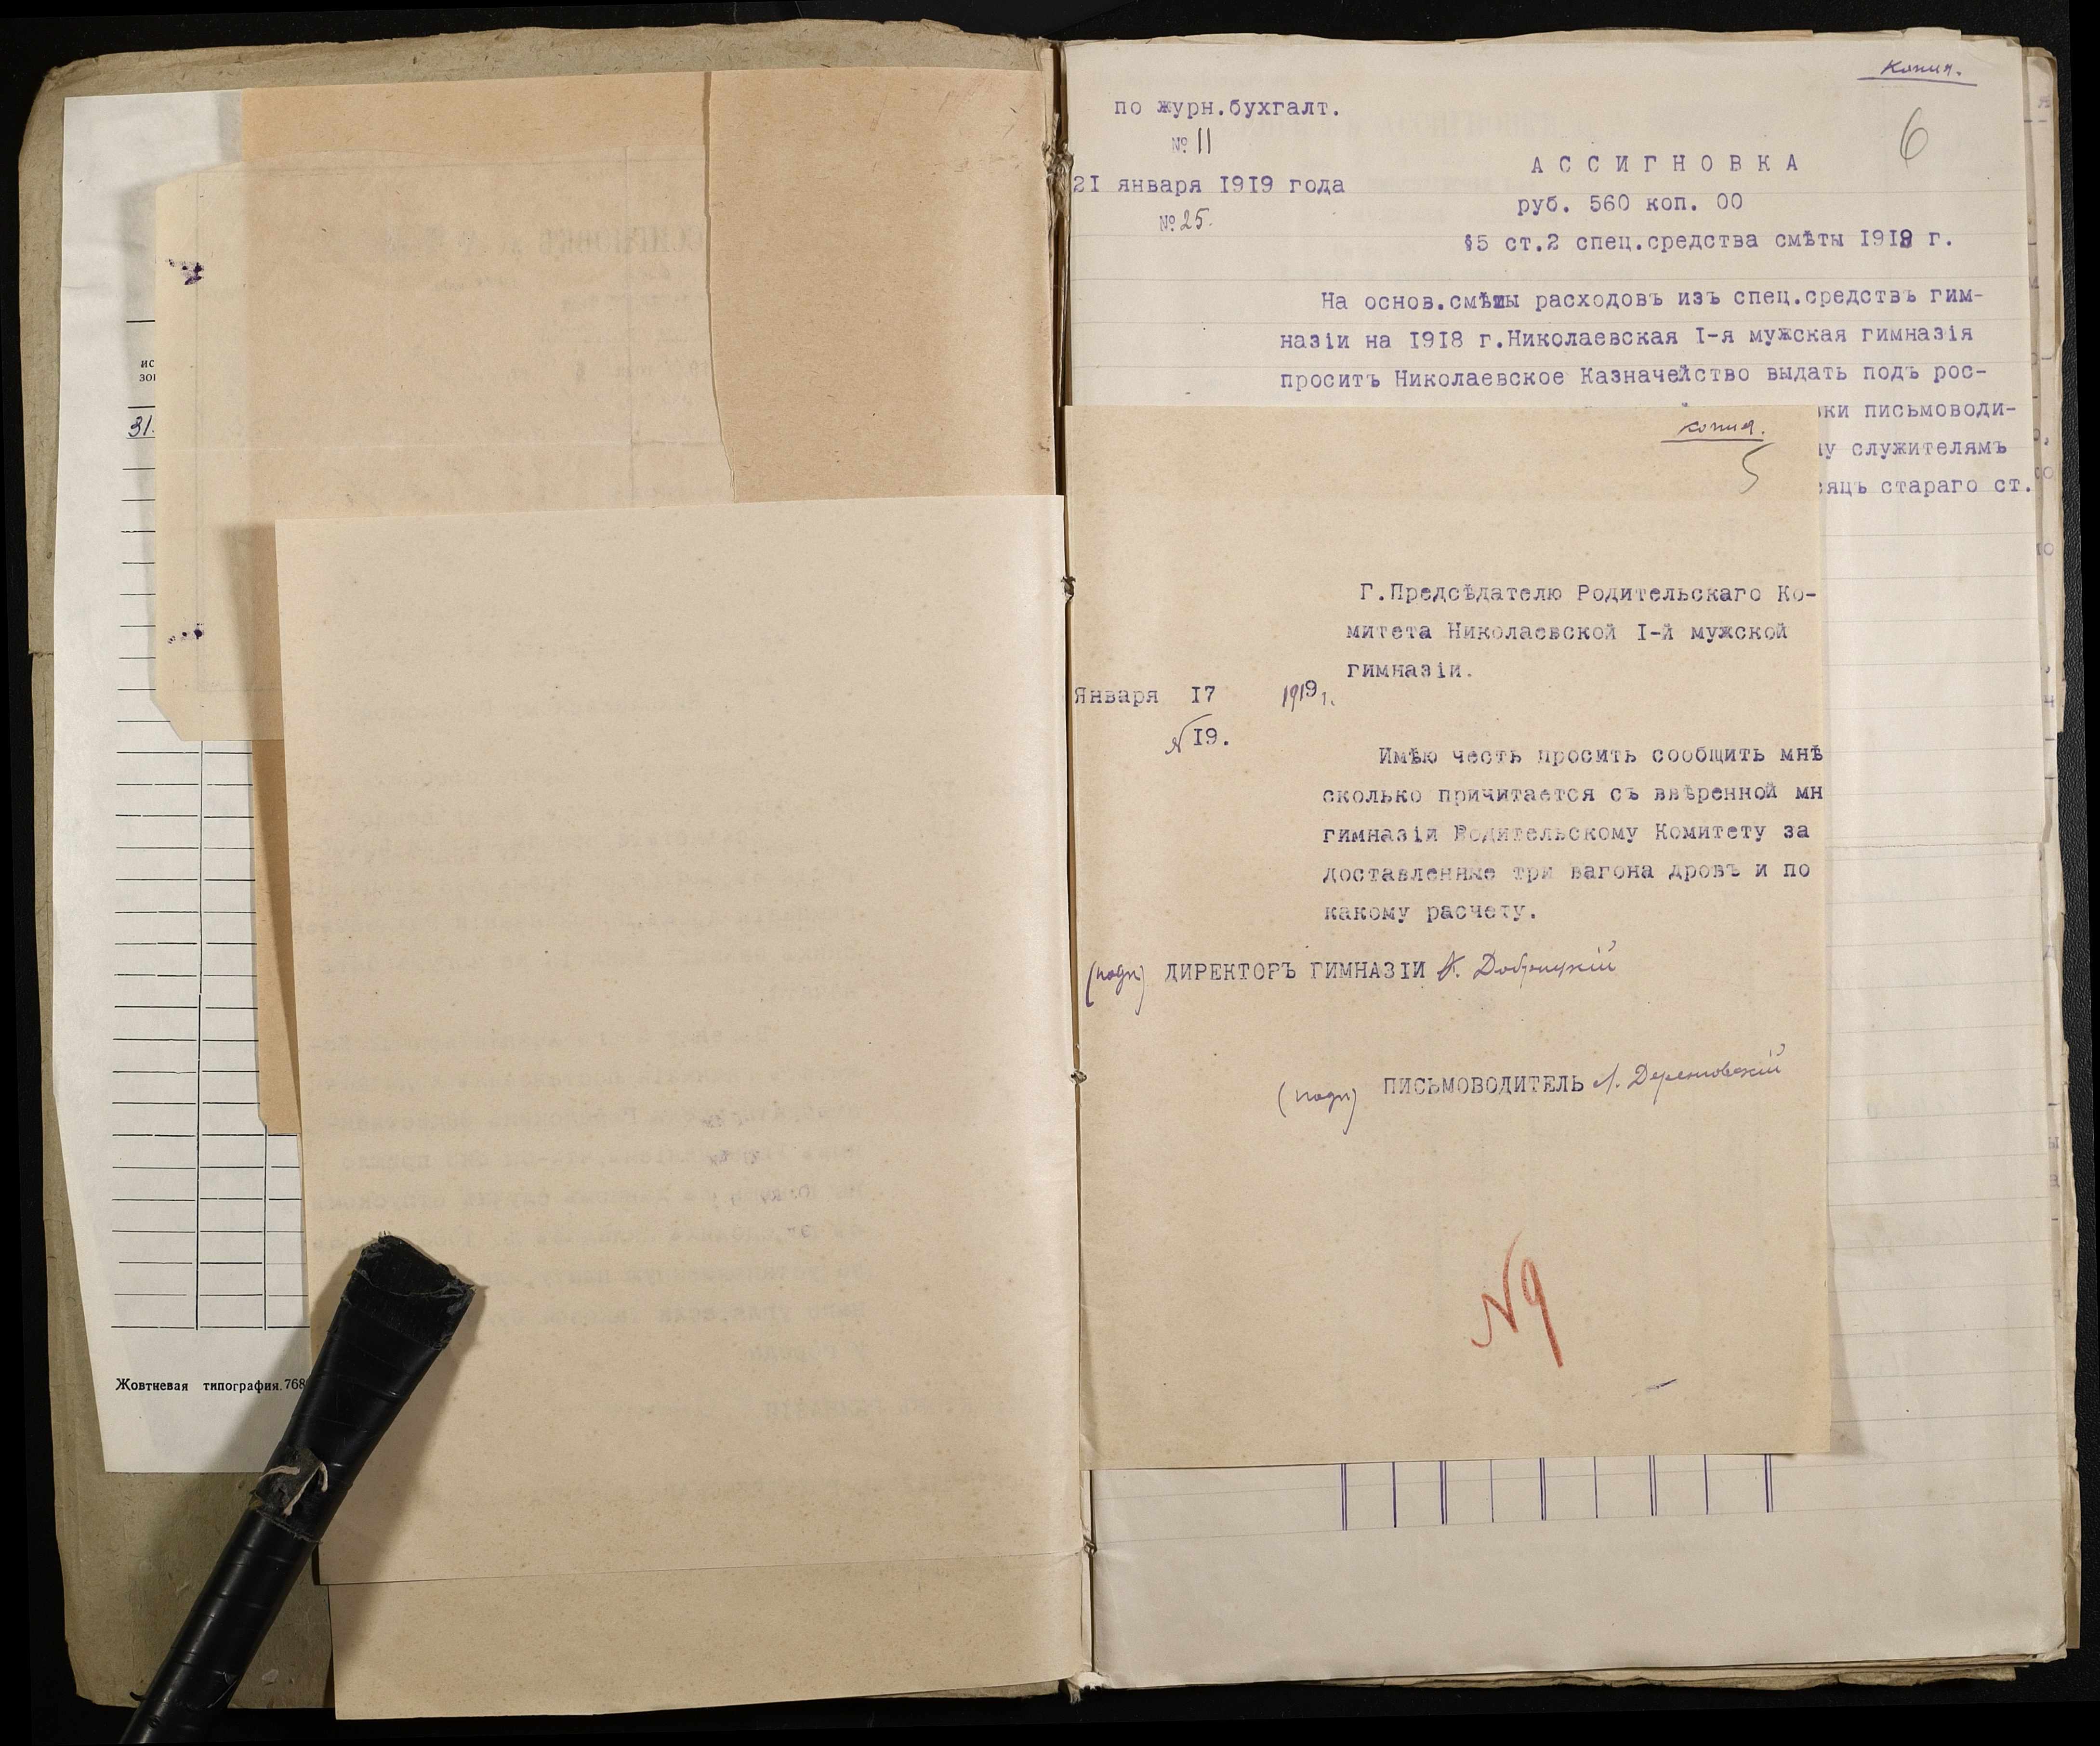 ис
зо
31.
Жовтневая типография. 768
Копия.
6
по журн.бухгалт.
№ 11
21 января 1919 года
№ 25.
АССИГНОВКА
руб. 560 коп. 00
§5 ст.2 спец.средства смѣты 1919 г.
На основ.смѣты расходовъ изъ спец.средствъ гим-
назіи на 1918 г.Николаевская I-я мужская гимназія
проситъ Николаевское Казначейство выдать подъ рос-
ки письмоводи-
у служителямъ
яцъ стараго ст.
копия.
5
Г.Предсѣдателю Родительскаго Ко-
митета Николаевской I-й мужской
гимназіи.
Января 17 1919 г.
№ 19.
Имѣю честь просить сообщить мнѣ
сколько причитается съ ввѣренной мн
гимназіи Родительскому Комитету за
доставленные три вагона дровъ и по
какому расчету.
(подп) ДИРЕКТОРЪ ГИМНАЗІИ
(подп) ПИСЬМОВОДИТЕЛЬ
№9